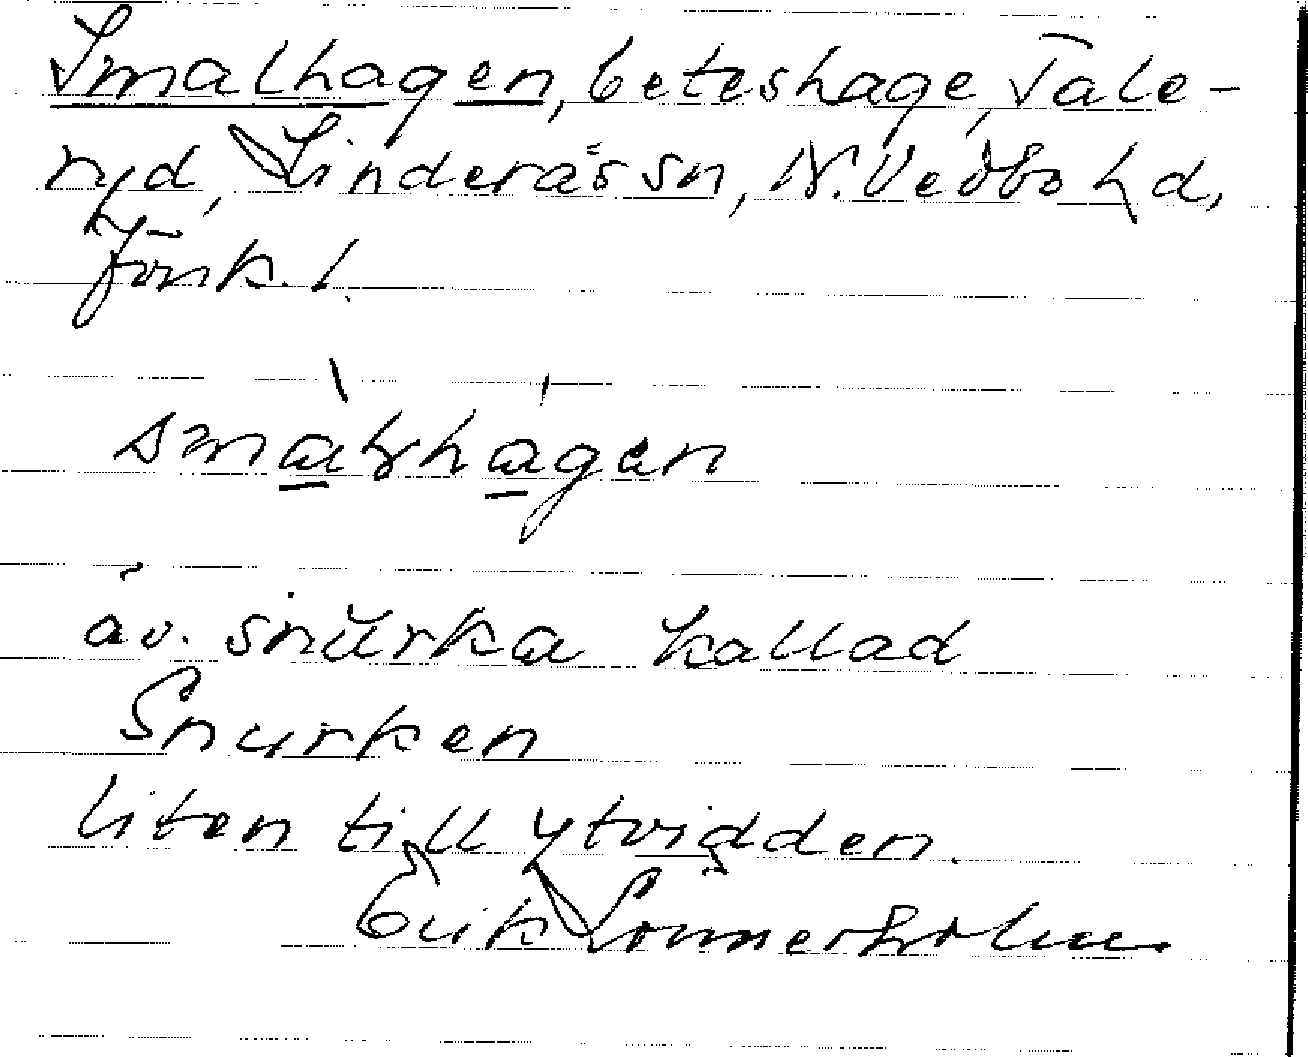 Smalhagen, beteshage, Tale-
ryd, Linderås sn, N. Vedbo hd,
Jönk. l.
smalhagen
av. snurka kallad
Snurken
liten till ytvidden.
Erik Sommerholm